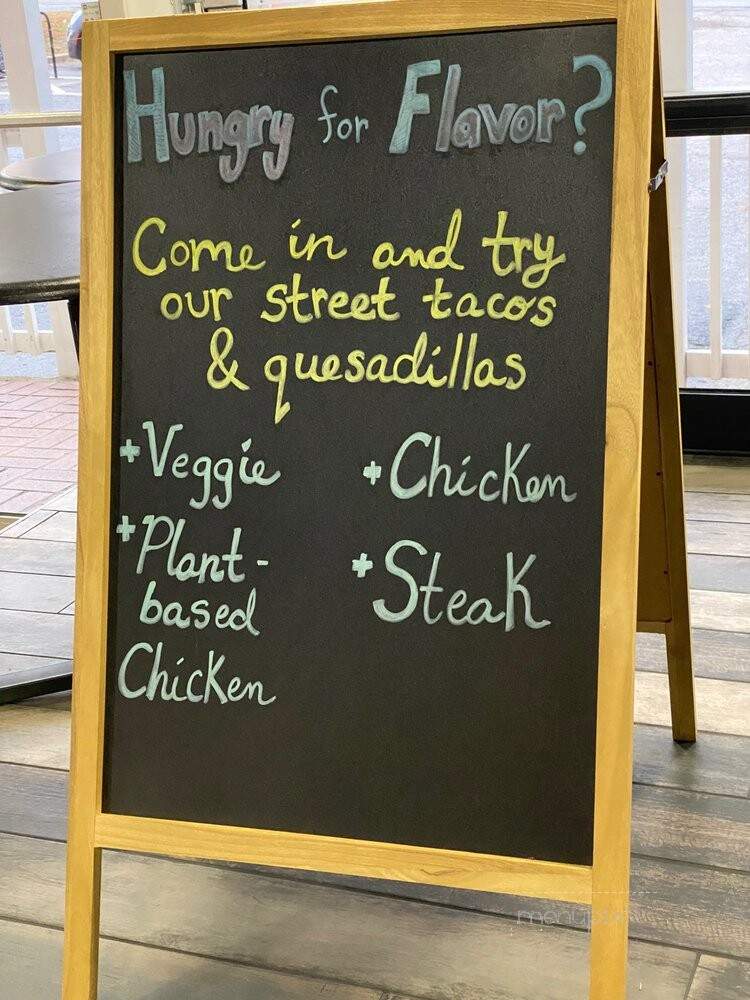 Hungry for Flavor?
Come in and try
our street tacos
& quesadillas
+Veggie
+Plant-
based
Chicken
+Chicken
+Steak